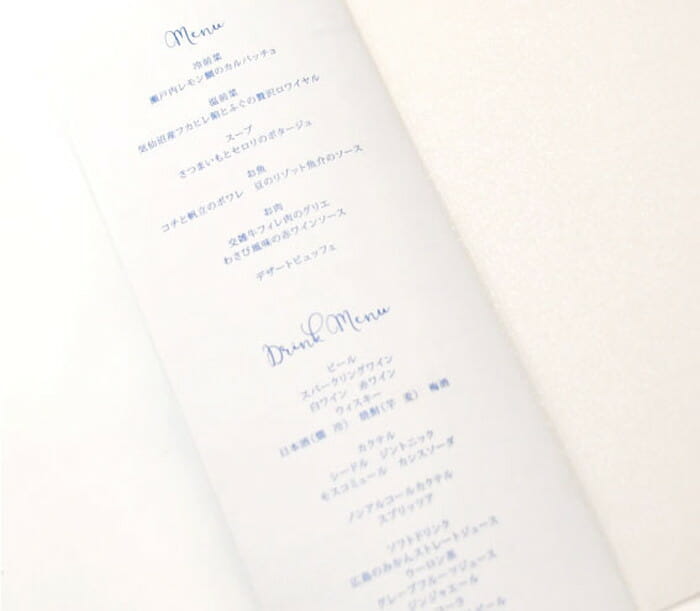 Menu
冷前菜
瀬戸内レモン鯛のカルパッチョ
温前菜
気仙沼産フカヒレ餡とふぐの贅沢ロワイヤル
スープ
さつまいもとセロリのポタージュ
お魚
コチと帆立のポワレ 豆のリゾット魚介のソース
お肉
交雑牛フィレ肉のグリエ
わさび風味の赤ワインソース
デザートビュッフェ
Drink Menu
ビール
スパークリングワイン
白ワイン 赤ワイン
ウィスキー
日本酒(燗 冷) 焼酎(芋 麦) 梅酒
カクテル
シードル ジントニック
モスコミュール カシスソーダ
ノンアルコールカクテル
スプリッツア
ソフトドリンク
広島のみかんストレートジュース
ウーロン茶
グレープフルーツジュース
ジンジャエール